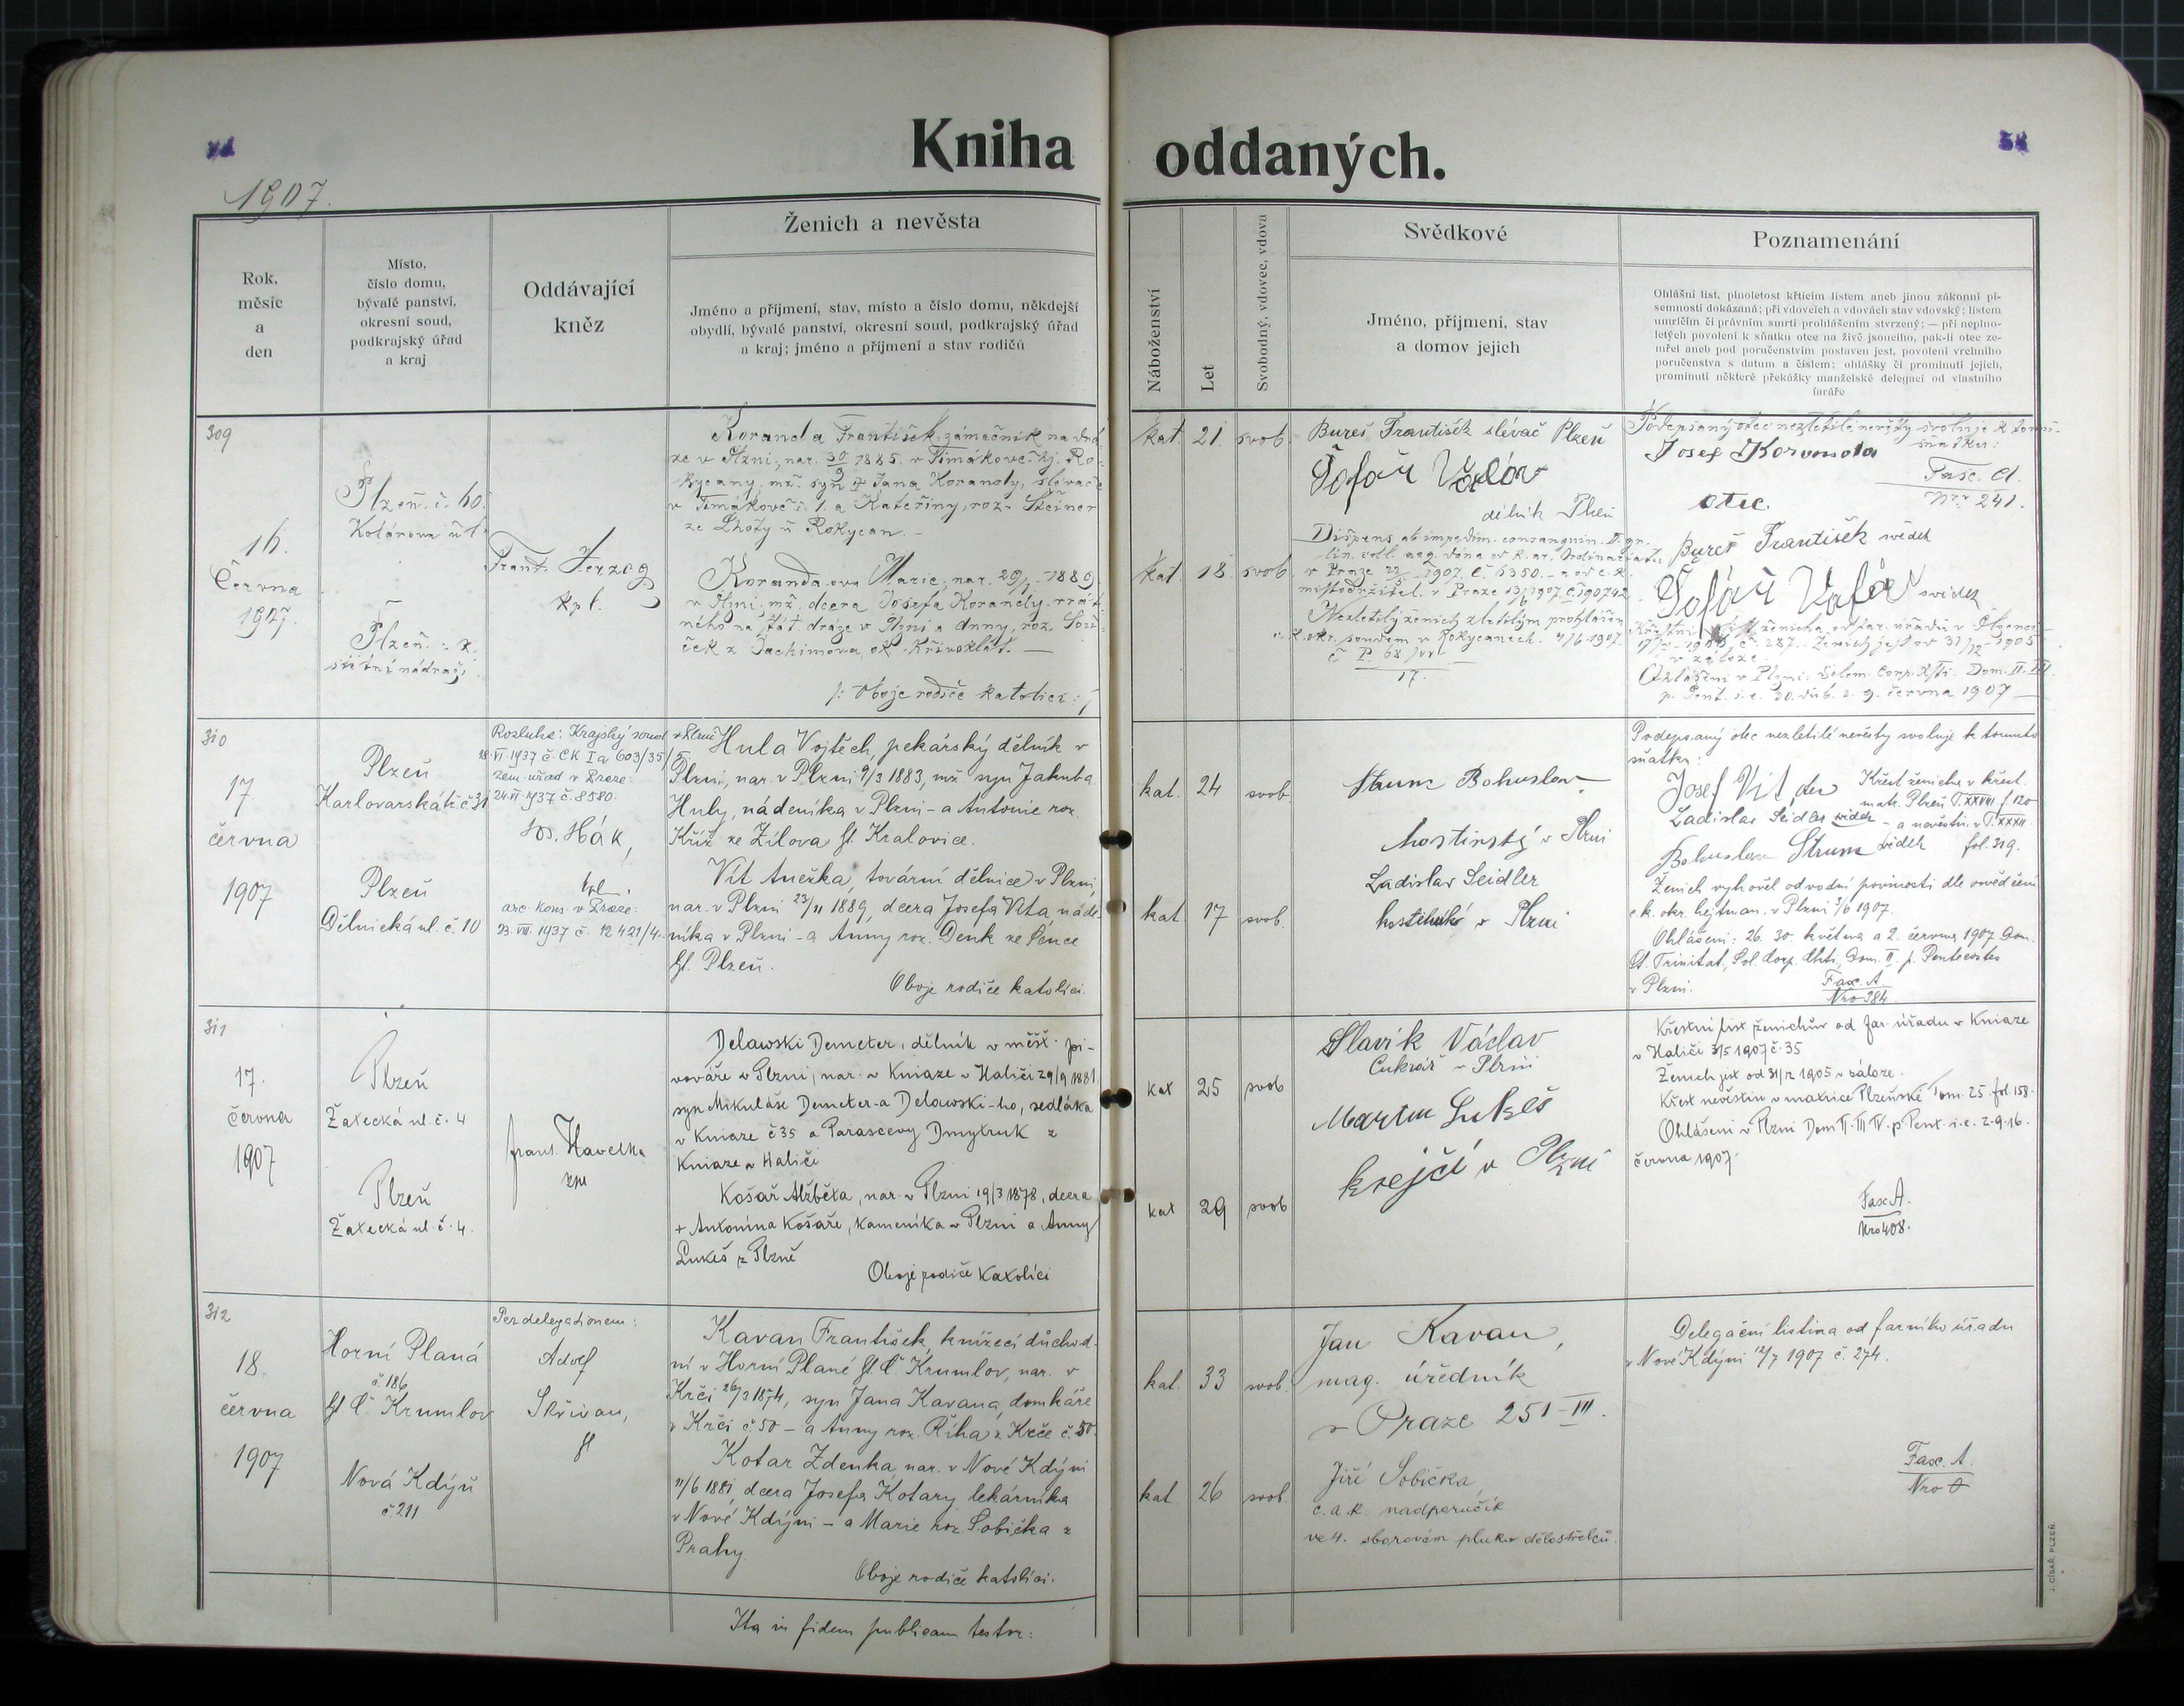 Kniha oddaných.
1907.
Rok,
měsíc
a
den
Místo,
číslo domu,
bývalé panství,
okresní soud,
podkrajský úřad
a kraj
Oddávající
kněz
Ženich a nevěsta
Jméno a příjmení, stav, místo a číslo domu, někdejší
obydlí, bývalé panství, okresní soud, podkrajský úřad
a kraj; jméno a příjmení a stav rodičů
Náboženství
Let
Svobodný, vdovec, vdova
Svědkové
Jméno, příjmení, stav
a domov jejich
Poznamenání
Ohlášní list, plnoletost křticím listem aneb jinou zákonní pí-
semností dokázaná; při vdovcích a vdovách stav vdovský; listem
umrlčím či právním smrti prohlášením stvrzený; — při neplno-
letých povolení k sňatku otce na živě jsoucího, pak-li otec ze-
mřel aneb pod poručenstvím postaven jest, povolení vrchního
poručenstva s datum a číslem; ohlášky či prominutí jejich,
prominutí některé překážky manželské delegací od vlastního
faráře
309
16.
Června
1907.
Plzeň. č. 60.
Kolárova ul.
Plzeň
státní nádraží
Frant. Herzog
kpl.
Koranda František, zámečník na drá-
ze v Plzni, nar. 30/9 1885. v Timákově hj. Ro-
kycany, mž. syn Jana Korandy, slévače
v Timákově č. 1. a Kateřiny, roz. Steiner
ze Lhoty u Rokycan. -
Koranda-ova Marie, nar. 1889
v Plzni mž. dcera Josefa Korandy, vrát-
ného na stát. dráze v Plzni a Anny, roz.
ček z Jachimova, ok. Křivoklát. —
/: Oboje rodiče katolíci :/
kat. 21. svob.
kat. 18. svob.
Bureš František slévač Plzeň
dělník Plzeň
Dispens. ab impedim. consanguin. II. gr.
v Praze 22/5 1907. č. 6350.
místodržitel. v Praze
Nezletilý ženich zletilým prohlášen
c. k. okr. soudem v Rokycanech. 4/6 1907.
č P. 68/
17.
Podepsaný otec nezletilé nevěsty svoluje k tomu
sňatku:
Josef Koranda
otec
Fasc. A.
Nro 241.
Bureš František svědek
svědek
Ohlášeni v Plzni: Solem. Corp. Xti. Dom. II. III
p. Pent. i. e. 30. 2. 9. června 1907 —
310
17
června
1907
Plzeň
Karlovarská tř. č 31
Plzeň
Dělnická ul. č. 10
Rozluka: Krajský soud v Plzni
18. VI. 1937 č CK Ia 603/35/5
zem. úřad v Praze:
24. VI 1937 č. 8580.
Jos. Hák,
kpl.
arc. kons. v Praze:
23. VIII. 1937 č. 12421/4.
Hula Vojtěch, pekárský dělník v
Plzni, nar. v Plzni 9/3 1883, mž. syn Jakuba
Huly, nádeníka v Plzni - a Antonie roz.
Kříž ze Žilova hj. Kralovice.
Vít Anežka, tovární dělnice v Plzni,
nar. v Plzni 23/11 1889, dcera Josefa Víta, náde-
níka v Plzni - a Anny roz. Denk ze Sence
hj. Plzeň.
Oboje rodiče katolíci.
kat. 24 svob.
kat. 17 svob.
Strunz Bohuslav
hostinský v Plzni
Ladislav Seidler
v Plzni
Podepsaný otec nezletilé nevěsty svoluje k tomuto
sňatku:
Josef Vít, otec
Křest ženicha v křest.
matr. Plzeň T. XXVIII. f. 120
Ladislav Seidler svědek - a nevěstin. v T. XXXII.
Bohuslav Strunz svědek fol. 319.
Ženich vyhověl odvodní povinnosti dle osvědčení
c. k. okr. hejtman. v Plzni 3/6 1907.
Ohlášeni: 26. 30. května a 2. června 1907 Dom.
St. Trinitat., Sol. Corp. Chti., Dom. II. p. Pentecostes
v Plzni.
Fasc. A.
Nro 384.
311
17.
června
1907
Plzeň
Žatecká ul. č. 4
Plzeň
Žatecká ul. č. 4.
frant. Havelka
kpl
Delawski Demeter, dělník v měšť. pi-
vováře v Plzni, nar. v Kniaze v Haliči 29/9 1881.
syn Mikuláše Demeter-a Delawski-ho, sedláka
v Kniaze č 35 a Parascevy Dmytruk z
Kniaze v Haliči
Košař Alžběta, nar. v Plzni 19/3 1878, dcera
+ Antonína Košaře, kameníka v Plzni a Anny
Lukeš z Plzně
Oboje rodiče katolíci
kat 25 svob
kat 29 svob
Slavík Václav
Cukrář v Plzni
Martin Lukeš
krejčí v Plzni
Křestní list ženichův od far. úřadu v Kniaze
v Haliči 3/5 1907 č. 35
Ženich jest od 31/12 1905 v záloze.
Křest nevěstin v matrice Plzeňské Tom. 25. fol. 158.
Ohlášeni v Plzni Dom II. III IV. p. Pent. i. e. 2. 9. 16.
června 1907.
Fasc A.
Nro 408.
312
18
června
1907
Horní Planá
č. 186
hj Č. Krumlov
Nová Kdýň
č. 211
Per delegationem:
Adolf
Skřivan,
Kavan František, knížecí důchod-
ní v Horní Plané hj. Č. Krumlov, nar. v
Krči 26/3 1874, syn Jana Kavana, domkáře
v Krči č. 50 - a Anny roz. Říha z Krče č. 50.
Kotar Zdenka, nar. v Nové Kdýni
11/6 1881 dcera Josefa Kotary, lekárníka
v Nové Kdýni - a Marie roz. Sobička z
Prahy.
Oboje rodiče katolíci.
kat. 33 svob.
kat. 26 svob.
Jan Kavan,
mag. úředník
v Praze 251-III.
Jiří Sobička,
c. a. k. nadporučík
ve 4. sborovém pluku dělostřelců.
Delegační listina od farního úřadu
v Nové Kdýni 12/7 1907 č. 274.
Fasc. A.
Nro 0
Ita in fidem publicam testor:
J. CÍSAŘ, PLZEŇ.